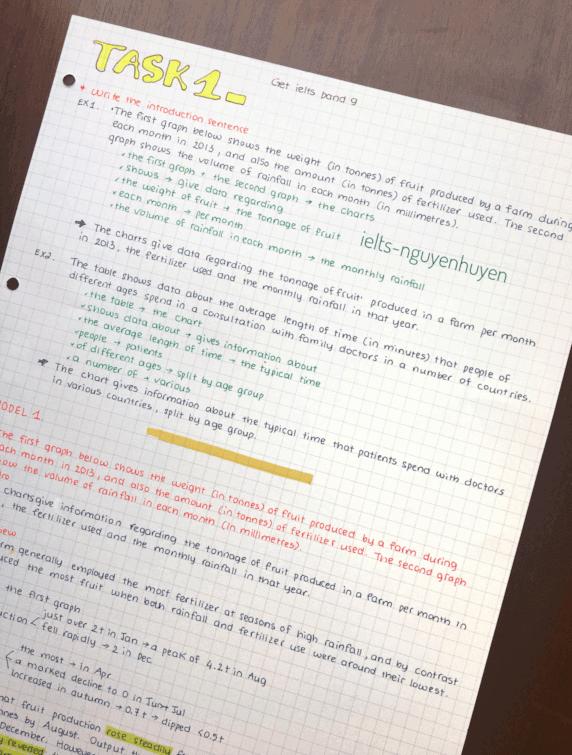 TASK 1_
Get ielts band 9
+ Write the introduction sentence
EX1. • The first graph below shows the weight (in tonnes) of fruit produced by a farm during
each month in 2013, and also the amount (in tonnes) of fertilizer used. The second
graph shows the volume of rainfall in each month (in millimetres).
the first graph + the second graph → the charts
shows → give data regarding
the weight of fruit → the tonnage of fruit
each month → per month
the volume of rainfall in each month → the monthly rainfall
ielts-nguyenhuyen
→ The charts give data regarding the tonnage of fruit produced in a farm per month
in 2013, the fertilizer used and the monthly rainfall in that year.
EX2. The table shows data about the average length of time (in minutes) that people of
different ages spend in a consultation with family doctors in a number of countries.
the table → the chart
shows data about → gives information about
the average length of time → the typical time
people → patients
of different ages → split by age group
a number of → various
→ The chart gives information about the typical time that patients spend with doctors
in various countries, split by age group.
MODEL 1.
The first graph below shows the weight (in tonnes) of fruit produced by a farm during
each month in 2013, and also the amount (in tonnes) of fertilizer used. The second graph
how the volume of rainfall in each month (in millimetres).
charts give information regarding the tonnage of fruit produced in a farm per month in
, the fertilizer used and the monthly rainfall in that year.
generally employed the most fertilizer at seasons of high rainfall, and by contrast
uced the most fruit when both rainfall and fertilizer use were around their lowest.
the first graph
just over 2t in Jan → a peak of 4.2t in Aug
uction < fell rapidly → 2 in Dec
the most → in Apr
a marked decline to 0 in Jun + Jul
increased in autumn → 0.7t → dipped <0.5t
hat fruit production rose steadily
nnes by August. Output
December. However